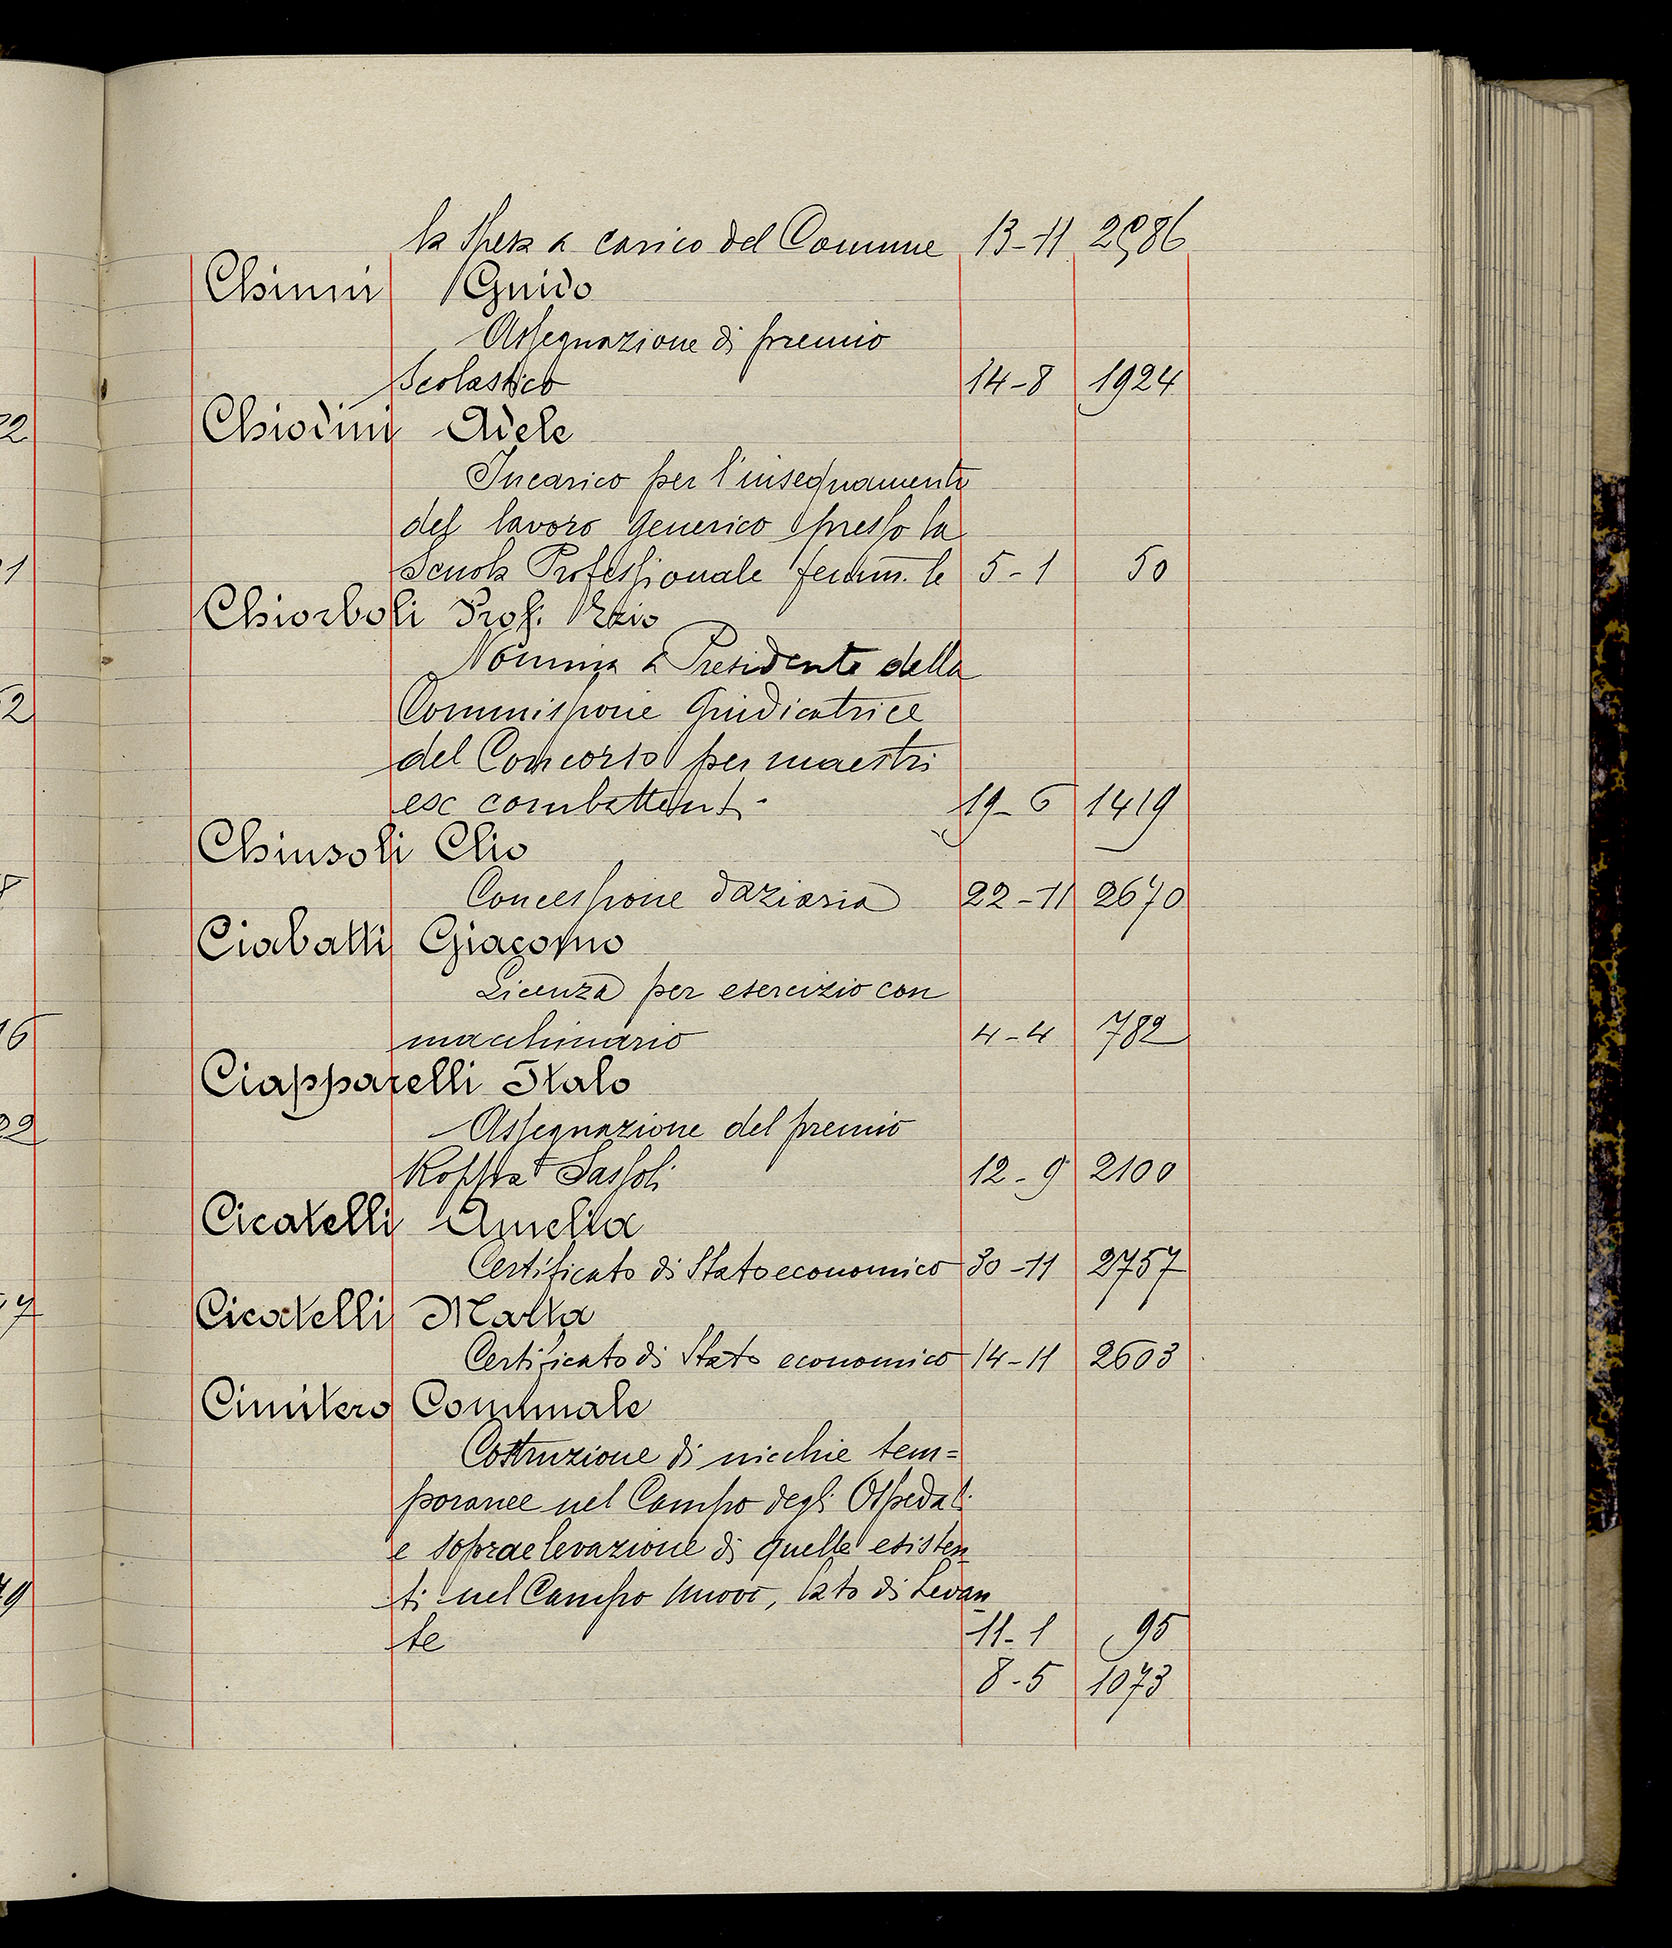 la spesa a carico del Comune 13-11 2586
Chinni Guido
Assegnazione di premio
scolastico 14-8 1924
Chiodini Adele
Incarico per l'insegnamento
del lavoro generico presso la
Scuola Professionale femm.le 5-1 50
Chiorboli Prof. Ezio
Nomina a Presidente della
Commissione Giudicatrice
del Concorso per maestri
ex combattenti 19-6 1419
Chiusoli Clio
Concessione daziaria 22-11 2670
Ciabatti Giacomo
Licenza per esercizio con
macchinario 4-4 782
Ciapparelli Italo
Assegnazione del premio
Sassoli 12-9 2100
Cicatelli Amelia
Certificato di Stato economico 30-11 2757
Cicatelli Marta
Certificato di Stato economico 14-11 2603
Cimitero Comunale
Costruzione di nicchie tem=
poranee nel Campo degli Ospedali
e sopraelevazione di quelle esisten
ti nel Campo Nuovo, lato di Levan
te 11-1 95
8-5 1073